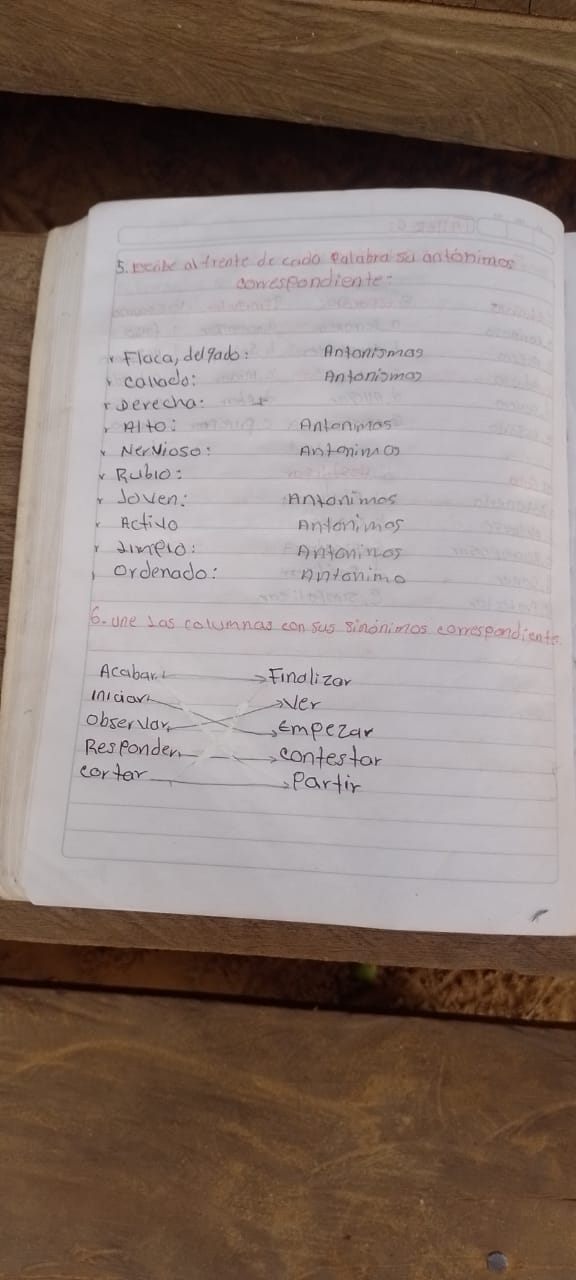 5. Escribe al frente de cada palabra su antónimos
correspondiente:
Flaca, delgado: Antonismas
Callado: Antonismos
Derecha:
Alto: Antonimos
Nervioso: Antonimos
Rubio:
Joven: Antonimos
Activo Antonimos
Limpio: Antoninos
Ordenado: Antonimo
6. une las columnas con sus sinónimos correspondiente.
Acabar Finalizar
iniciar Ver
Observar Empezar
Responder contestar
cortar Partir